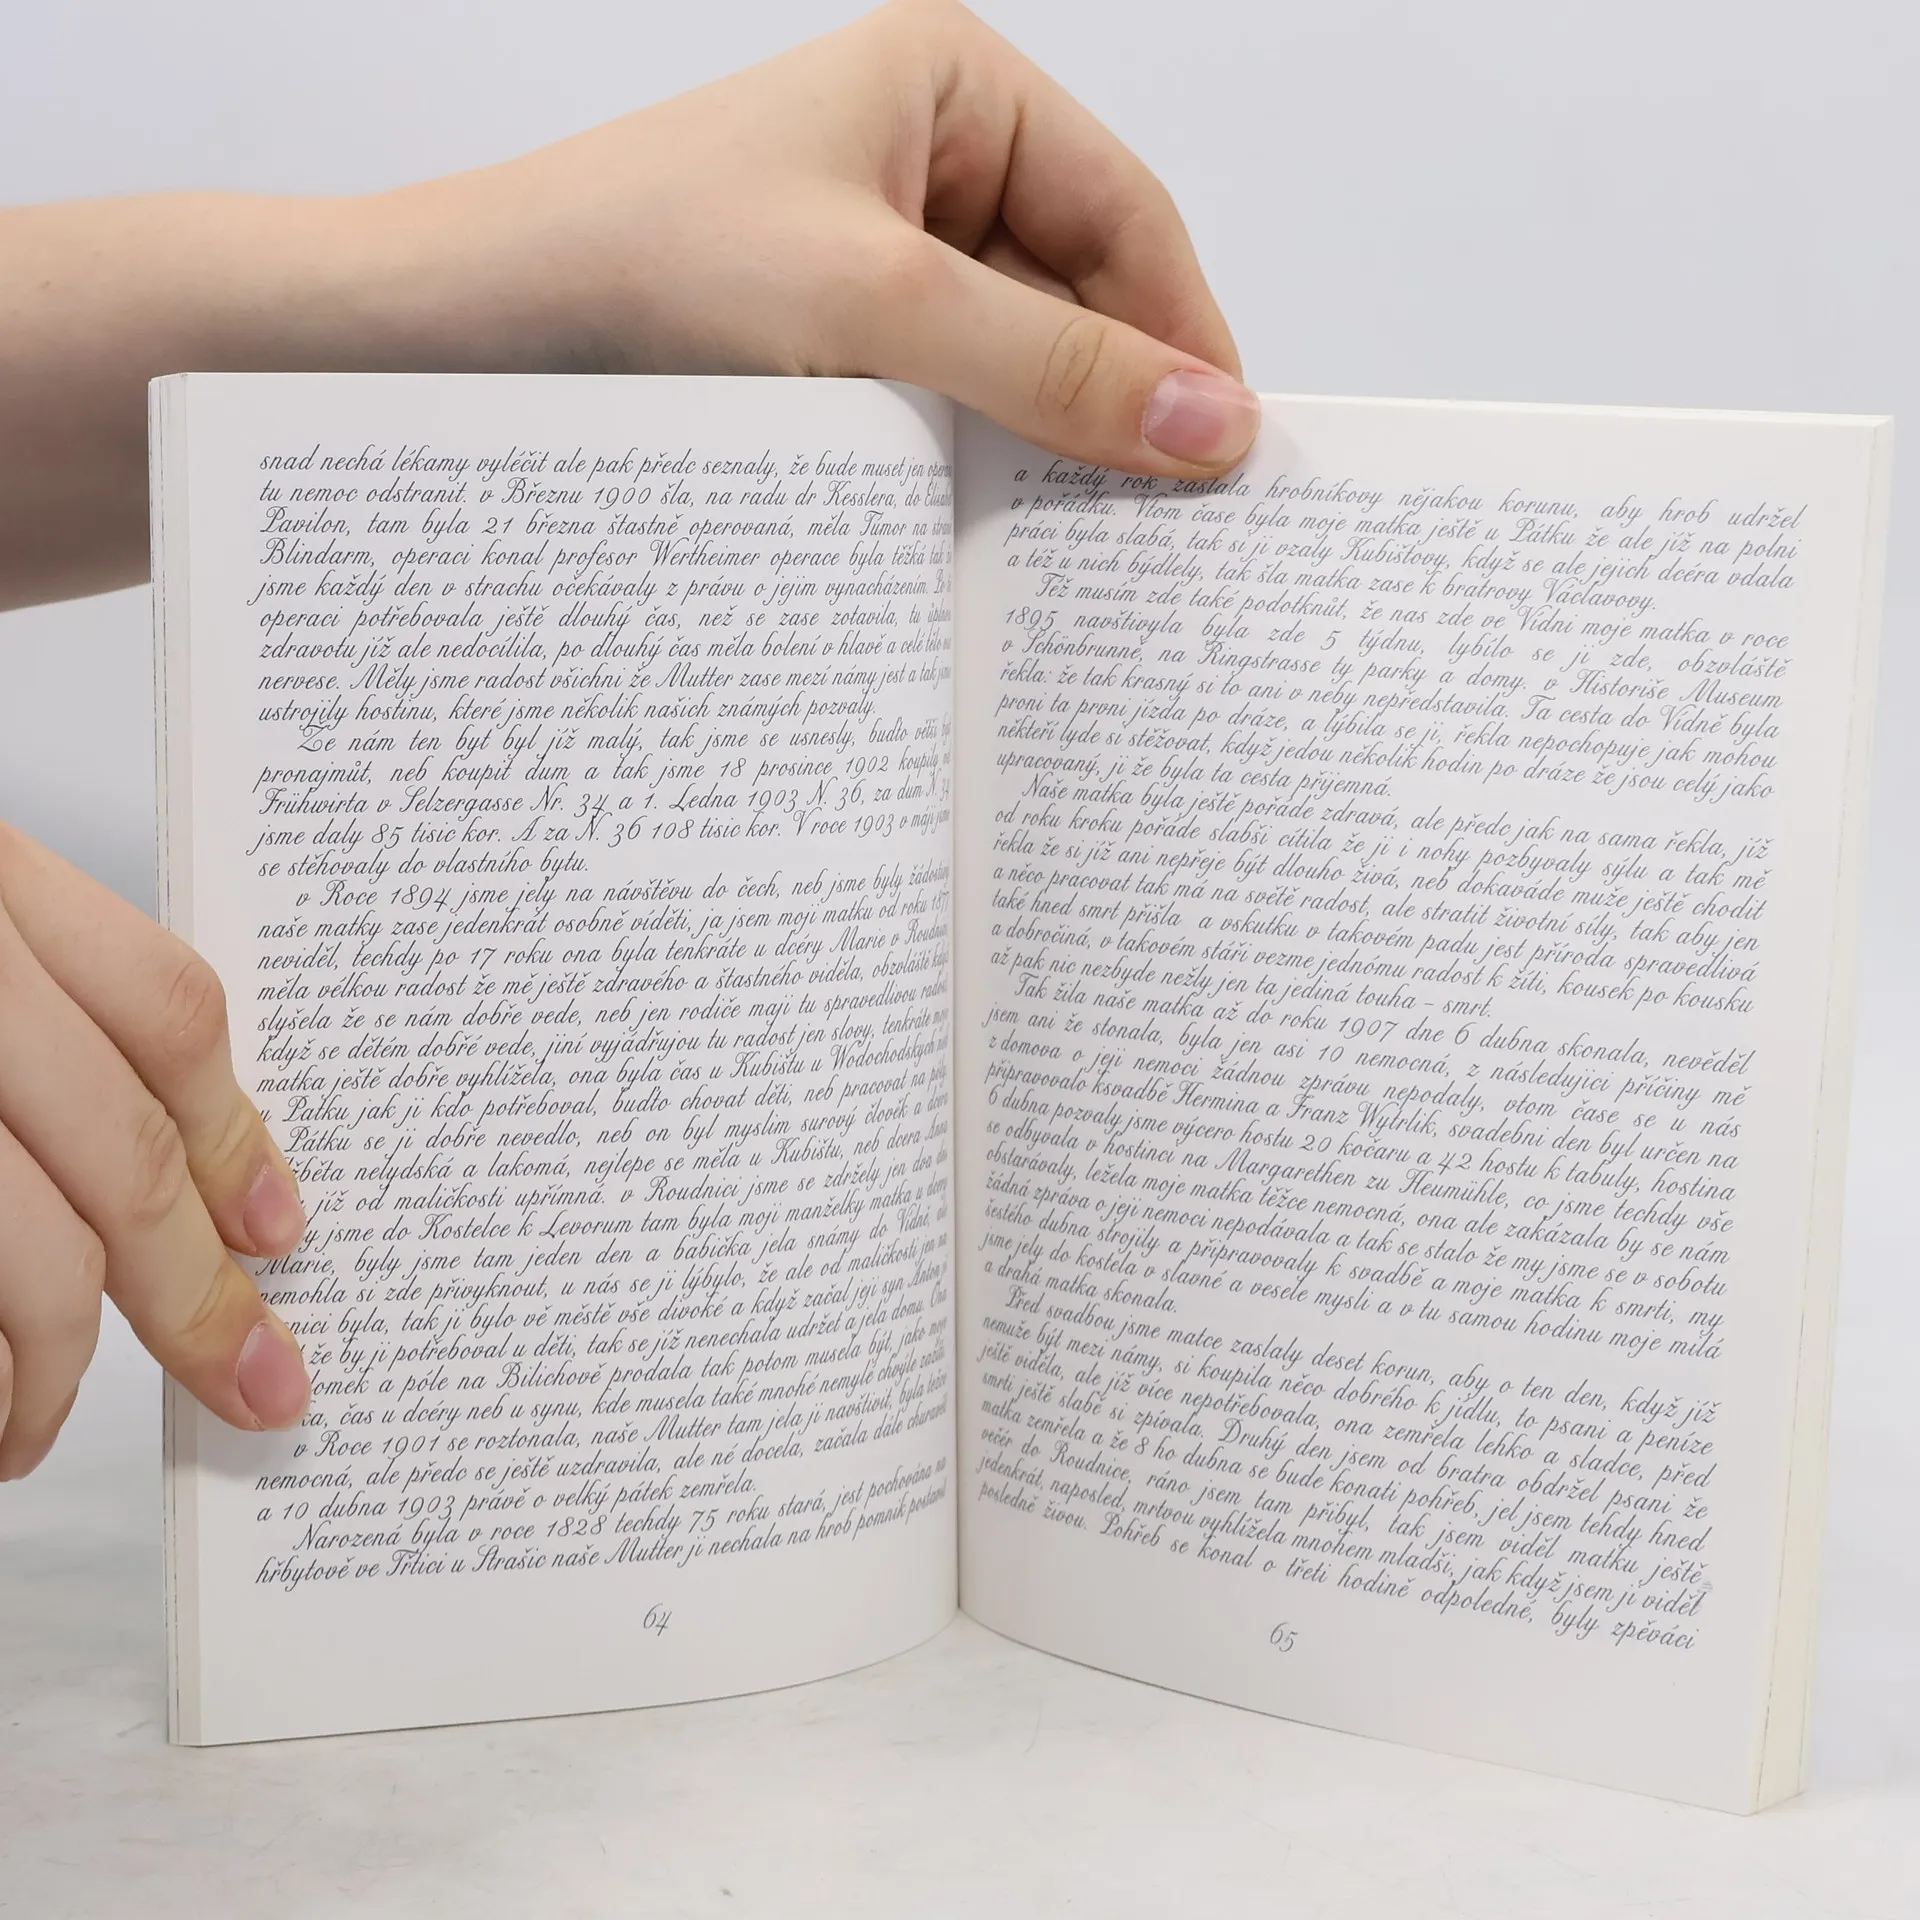 snad nechá lékamy vyléčit ale pak předc seznaly, že bude muset jen
tu nemoc odstranit. v Březnu 1900 šla, na radu dr Kesslera, do
Pavilon, tam byla 21 března štastně operovaná, měla Tumor na
Blindarm, operaci konal profesor Wertheimer operace byla těžká tak
jsme každý den v strachu očekávaly z právu o jejim vynacházením.
operaci potřebovala ještě dlouhý čas, než se zase zotavila, tu
zdravotu již ale nedocílila, po dlouhý čas měla bolení v hlavě a celé tělo
nervese. Měly jsme radost všichni že Mutter zase mezí námy jest a tak
ustrojily hostinu, které jsme několik našich známých pozvaly.
Že nám ten byt byl již malý, tak jsme se usnesly, buďto větší
pronajmůt, neb koupit dum a tak jsme 18 prosince 1902 koupily
Frühwirta v Selzergasse Nr. 34 a 1. Ledna 1903 N. 36, za dum N. 34
jsme daly 85 tisic kor. A za N. 36 108 tisic kor. V roce 1903 v máji
se stěhovaly do vlastního bytu.
v Roce 1894 jsme jely na návštěvu do čech, neb jsme byly
naše matky zase jedenkrát osobně víděti, ja jsem moji matku od roku 1877
neviděl, techdy po 17 roku ona byla tenkráte u dcéry Marie v
měla vélkou radost že mě ještě zdravého a štastného viděla, obzvláště
slyšela že se nám dobře vede, neb jen rodiče maji tu spravedlivou
když se dětém dobřé vede, jiní vyjádřujou tu radost jen slovy, tenkráte
matka ještě dobře vyhlížela, ona byla čas u Kubištu u Wodochodských
u Pátku jak ji kdo potřeboval, buďto chovat děti, neb pracovat na
Pátku se ji dobře nevedlo, neb on byl myslim surový člověk a
nelydská a lakomá, nejlepe se měla u Kubištu, neb dcera Anna
již od maličkosti upřímná. v Roudnici jsme se zdržely jen dva
jsme do Kostelce k Levorum tam byla moji manželky matka u
Marie, byly jsme tam jeden den a babička jela snámy do Vídně,
nemohla si zde přivyknout, u nás se ji lýbylo, že ale od maličkosti jen na
byla, tak ji bylo vě městě vše divoké a když začal její syn Anton
že by ji potřeboval u děti, tak se již nenechala udržet a jela domu. Ona
a póle na Bilichově prodala tak potom musela být, jako
čas u dcéry neb u synu, kde musela také mnohé nemylé chvyle
v Roce 1901 se roztonala, naše Mutter tam jela ji navštivit, byla
nemocná, ale předc se ještě uzdravila, ale né docela, začala dále
a 10 dubna 1903 právě o velký pátek zemřela.
Narozená byla v roce 1828 techdy 75 roku stará, jest pochována na
hřbytově ve Třtici u Strašic naše Mutter ji nechala na hrob pomník
64
a každý rok zaslala hrobníkovy nějakou korunu, aby hrob udržel
v pořádku. Vtom čase byla moje matka ještě u Pátku že ale již na polni
práci byla slabá, tak si ji vzaly Kubištovy, když se ale jejich dcéra vdala
a též u nich býdlely, tak šla matka zase k bratrovy Václavovy.
Též musím zde také podotknůt, že nas zde ve Vídni moje matka v roce
1895 navštivyla byla zde 5 týdnu, lybílo se ji zde, obzvláště
v Schönbrunně, na Ringstrasse ty parky a domy. v Historiše Museum
řekla: že tak krasný si to ani v neby nepředstavila. Ta cesta do Vídně byla
proni ta prvni jízda po dráze, a lýbila se ji, řekla nepochopuje jak mohou
někteří lyde si stěžovat, když jedou několik hodin po dráze že jsou celý jako
upracovaný, ji že byla ta cesta příjemná.
Naše matka byla ještě pořáde zdravá, ale předc jak na sama řekla, již
od roku kroku pořáde slabši cítila že ji i nohy pozbyvaly sýlu a tak mě
řekla že si již ani nepřeje být dlouho živá, neb dokaváde muže ještě chodit
a něco pracovat tak má na světě radost, ale stratit životní síly, tak aby jen
také hned smrt přišla a vskutku v takovém padu jest příroda spravedlivá
a dobročiná, v takovém stáři vezme jednómu radost k žíti, kousek po kousku
až pak nic nezbyde nežly jen ta jediná touha – smrt.
Tak žila naše matka až do roku 1907 dne 6 dubna skonala, nevěděl
jsem ani že stonala, byla jen asi 10 nemocná, z následujici příčiny mě
z domova o její nemoci žádnou zprávu nepodaly, vtom čase se u nás
připravovalo ksvadbě Hermina a Franz Wytrlik, svadebni den byl určen na
6 dubna pozvaly jsme výcero hostu 20 kočaru a 42 hostu k tabuly, hostina
se odbyvala v hostinci na Margarethen zu Heumühle, co jsme techdy vše
obstarávaly, ležela moje matka těžce nemocná, ona ale zakázala by se nám
žádná zpráva o její nemoci nepodávala a tak se stalo že my jsme se v sobotu
šestého dubna strojily a připravovaly k svadbě a moje matka k smrti, my
jsme jely do kostela v slavné a vesele mysli a v tu samou hodinu moje milá
a drahá matka skonala.
Před svadbou jsme matce zaslaly deset korun, aby o ten den, když již
nemuže být mezi námy, si koupila něco dobrého k jídlu, to psani a peníze
ještě viděla, ale již více nepotřebovala, ona zemřela lehko a sladce, před
smrti ještě slabě si zpívala. Druhý den jsem od bratra obdržel psani že
matka zemřela a že 8 ho dubna se bude konati pohřeb, jel jsem tehdy hned
večér do Roudnice, ráno jsem tam přibyl, tak jsem viděl matku ještě
jedenkrát, naposled, mrtvou vyhlížela mnohem mladši, jak když jsem ji viděl
posledně živou. Pohřeb se konal o třeti hodině odpoledné, byly zpěváci
65